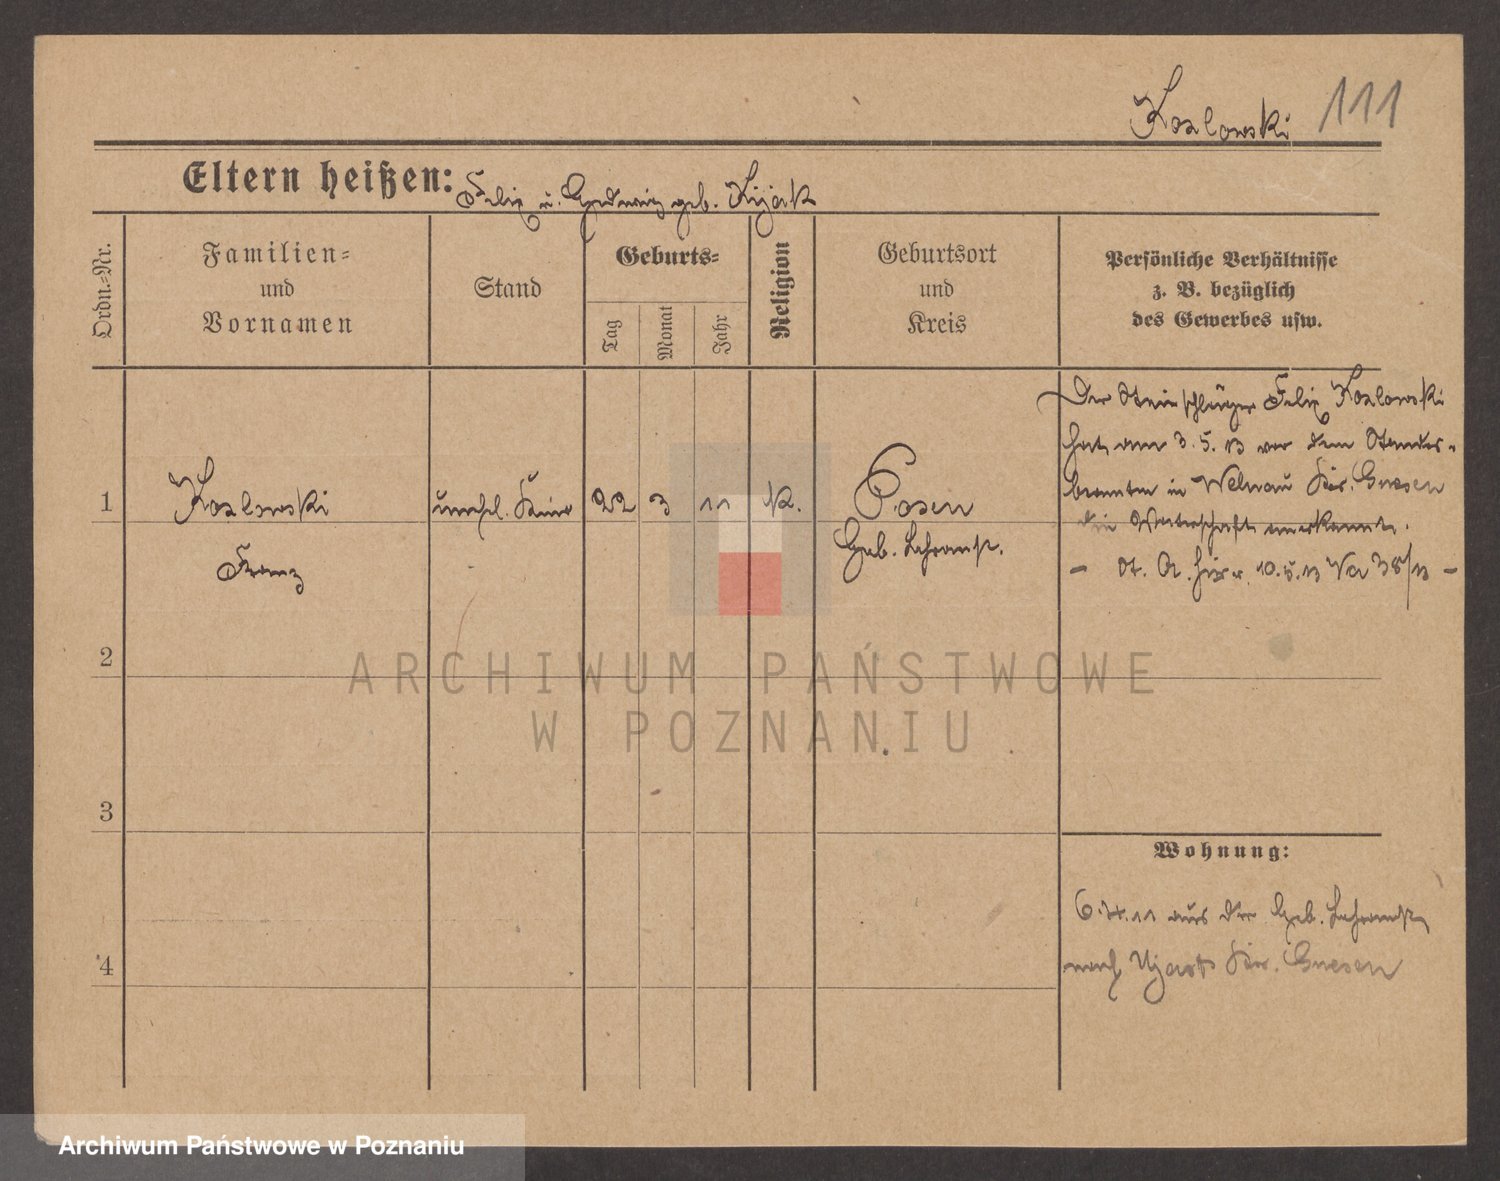 Kozlowski 111
Eltern heißen: Felix u. Hedwig geb. Kijak
Ordn.-Nr.
Familien-
und
Vornamen
Stand
Geburts-
Tag
Monat
Jahr
Religion
Geburtsort
und
Kreis
Persönliche Verhältnisse
z. B. bezüglich
des Gewerbes usw.
1
Kozlowski
Franz
unehl. Kind
22 3 11 K.
Posen
Heb. Lehranst.
Der Steinschläger Felix Kozlowski
hat am 3.5.13 vor dem Standes-
beamten in Welnau Kr. Gnesen
die Vaterschaft anerkannt.
- St. A. hier 10.5.13 38/13 -
2
3
4
Wohnung:
6.4.11 aus der Heb. Lehranst.
nach Ujast Kr. Gnesen
ARCHIWUM PAŃSTWOWE
W POZNANIU
Archiwum Państwowe w Poznaniu